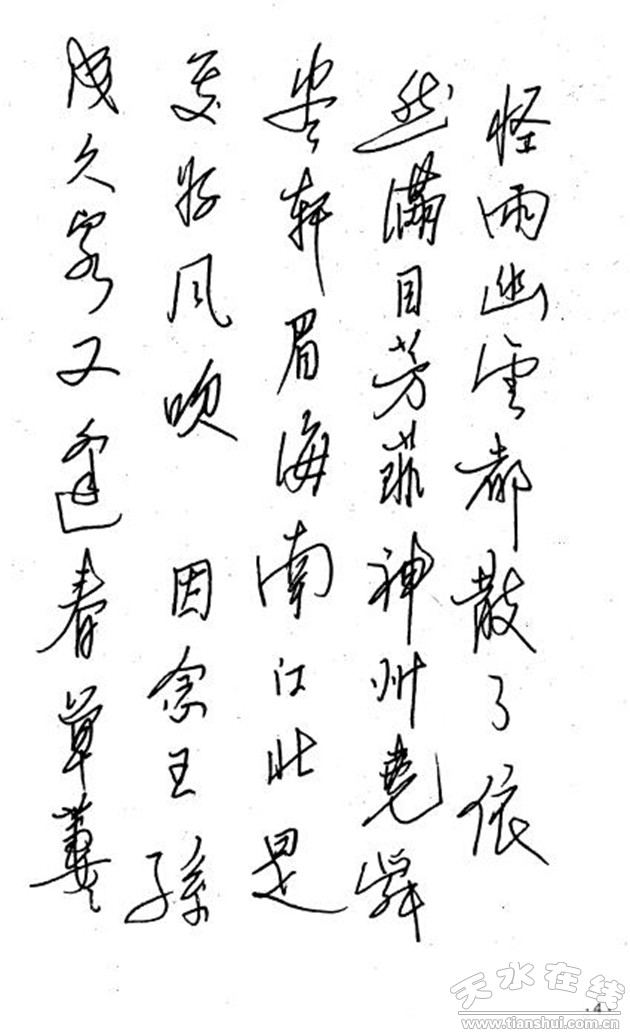 怪雨幽雲都散了依
然滿目芳菲神州堯舜
盡軒眉海南江北是
处好風吹 因念王孫
成久客又逢春草萋
天水在线
www.tianshui.com.cn
·4·